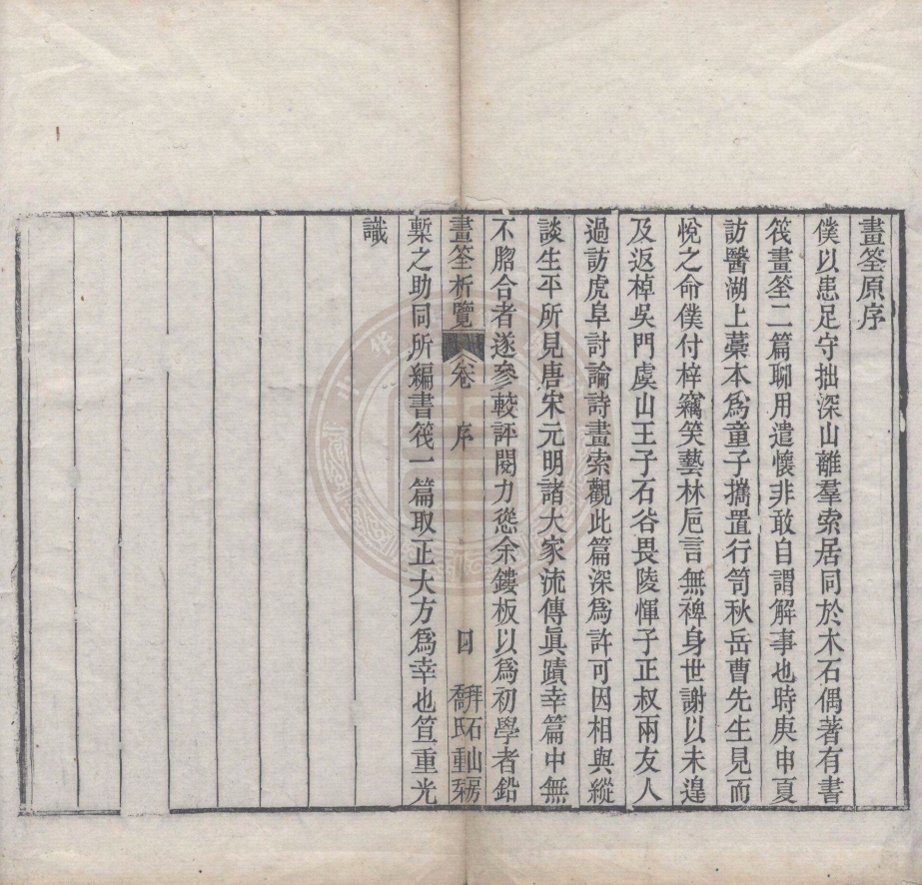 畫筌原序
僕以患足守拙深山離羣索居同於木石偶著有書
筏畫筌二篇聊用遣懷非敢自謂解事也時庚申夏
訪醫湖上藁本爲童子攜置行笥秋岳曹先生見而
悅之命僕付梓竊笑藝林巵言無裨身世謝以未遑
及返棹吳門虞山王子石谷毘陵惲子正叔兩友人
過訪虎阜討論詩畫索觀此篇深爲許可因相與縱
談生平所見唐宋元明諸大家流傳眞蹟幸篇中無
不脗合者遂參較評閱力慫余鏤板以爲初學者鉛
畫筌析覽 卷 序
槧之助同所編書筏一篇取正大方爲幸也笪重光
識